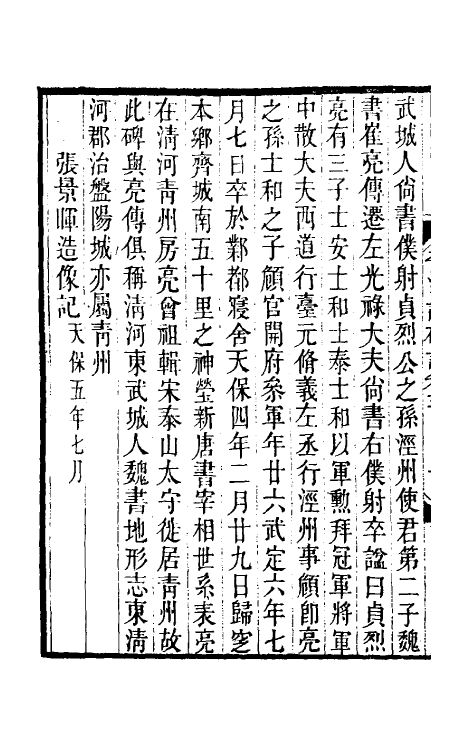 武城人尙書僕射貞烈公之孫涇州使君第二子魏
書崔亮傳遷左光祿大夫尙書右僕射卒諡曰貞烈
亮有三子士安士和士泰士和以軍勲拜冠軍將軍
中散大夫西道行臺元脩義左丞行涇州事頠卽亮
之孫士和之子頠官開府叅軍年廿六武定六年七
月七日卒於鄴都寢舍天保四年二月廿九日歸窆
本鄉齊城南五十里之神塋新唐書宰相世系表亮
在淸河靑州房亮曾祖輯宋泰山太守徙居靑州故
此碑與亮傳俱稱淸河東武城人魏書地形志東淸
河郡治盤陽城亦屬靑州
張景暉造像記天保五年七月